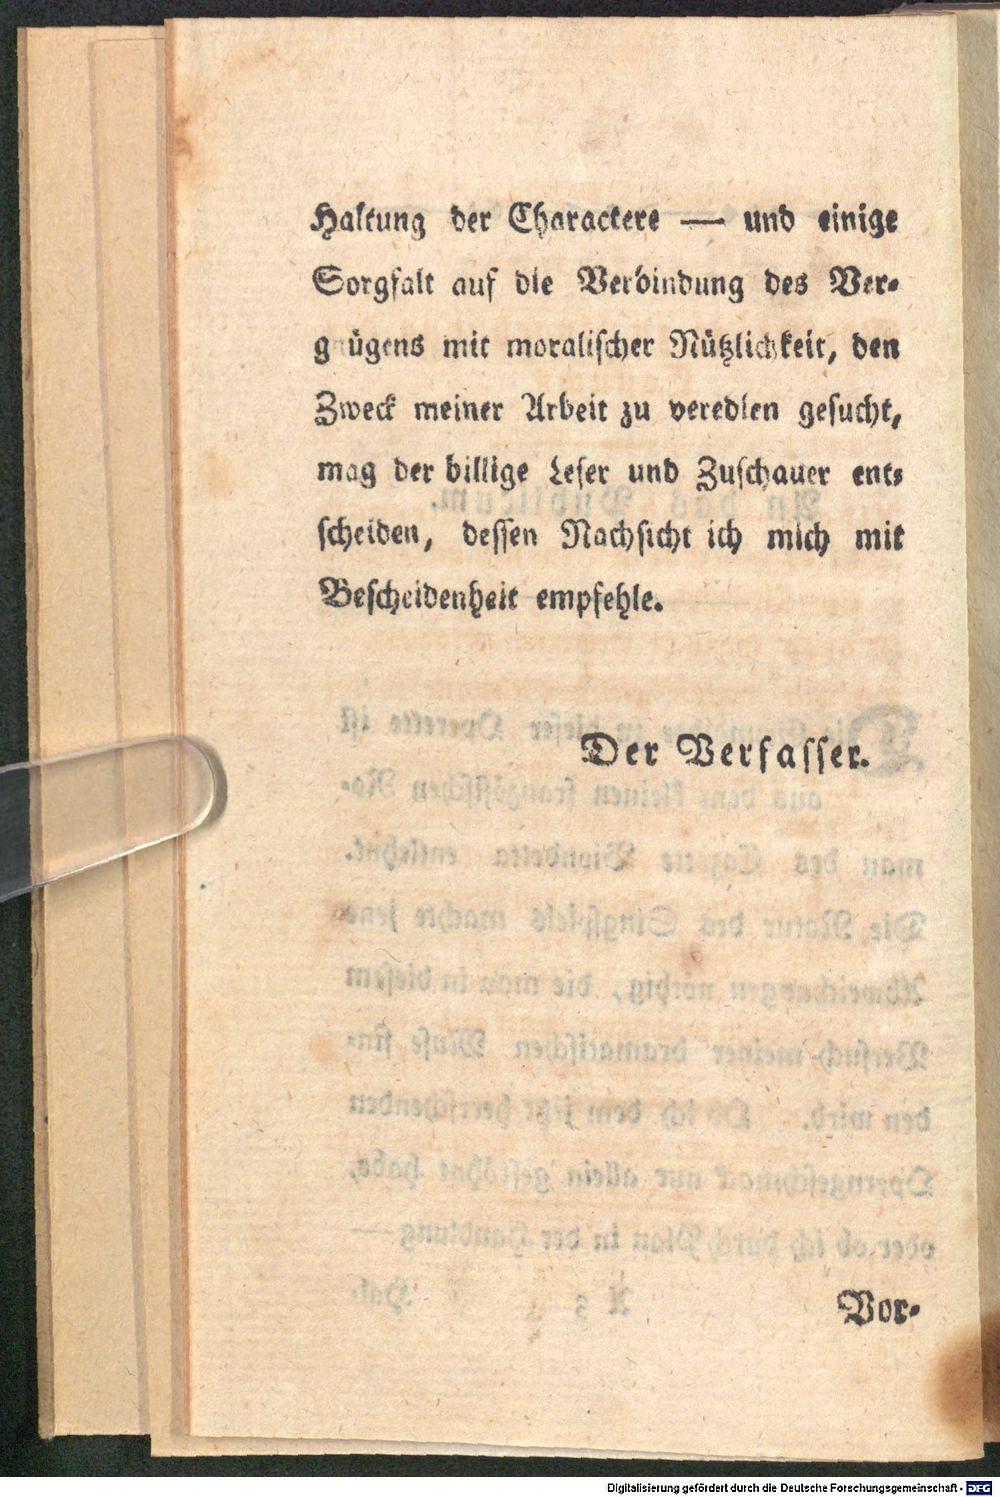 Haltung der Charactere — und einige
Sorgfalt auf die Verbindung des Ver-
gnügens mit moralischer Nützlichkeit, den
Zweck meiner Arbeit zu veredlen gesucht,
mag der billige Leser und Zuschauer ent-
scheiden, dessen Nachsicht ich mich mit
Bescheidenheit empfehle.
Der Verfasser.
Vor-
Digitalisierung gefördert durch die Deutsche Forschungsgemeinschaft - DFG